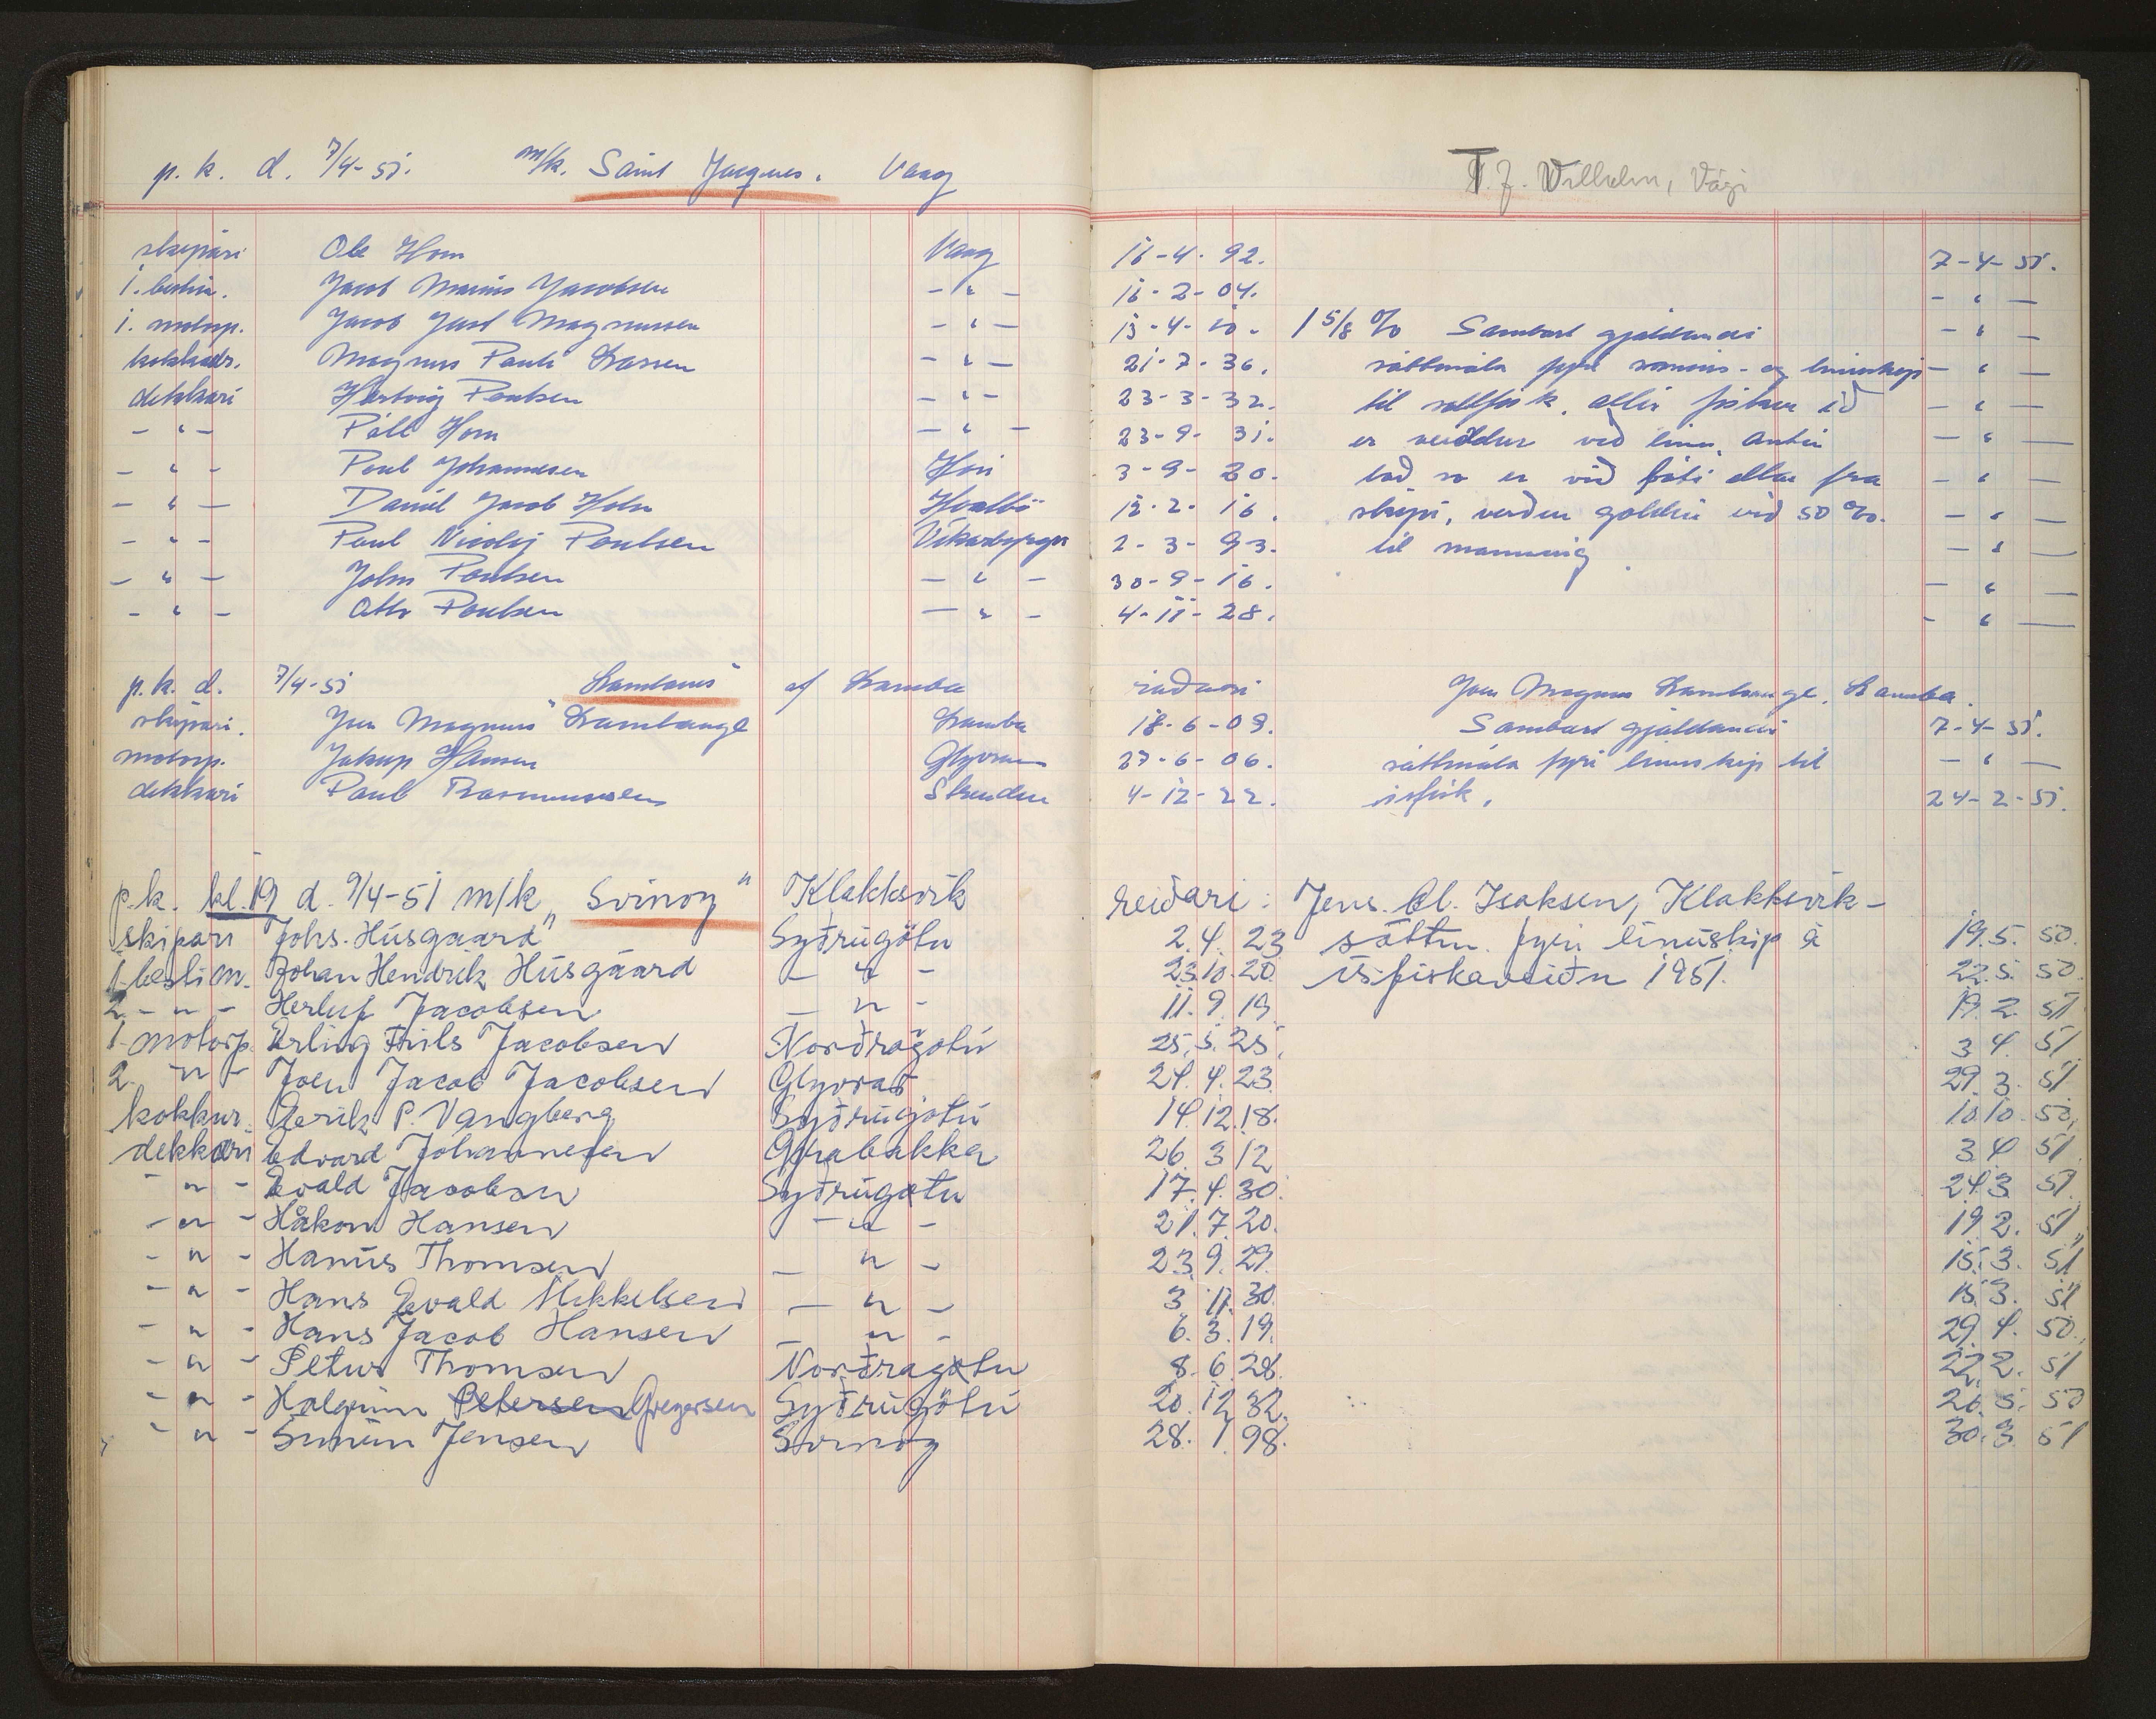 p. k. d. 7/4-51. m/k. Saint Jacques. Vaag T. J. Vilhelm, Vági
skipari Ole Horn Vaag 11-4-92. 7-4-51.
1. bestim. Jacob Marius Jacobsen - " - 16-2-04. - " -
1. motorp. Jacob Just Magnussen - " - 13-4-10. 1 5/8 % Sambart gjaldandi - " -
kokkur. Magnus Pauli Larsen - " - 21-7-36. sáttmála fyri snuru- og línuskip - " -
dekkari Hartvig Poulsen - " - 23-3-32. til saltfisk, allur fiskur ið - " -
- " - Páll Horn - " - 23-9-31. er veiddur við línu, antin - " -
- " - Poul Johannesen Hovi 3-9-20. tað so er við báti ella frá - " -
- " - Daniel Jacob Holm Hvalbö 15-2-16. skipi, verður goldin við 50 %. - " -
- " - Poul Nicolaj Poulsen Vikarbyrgi 2-3-93. til manning - " -
- " - John Poulsen - " - 30-9-16. - " -
- " - Otto Poulsen - " - 4-11-28. - " -
p. k. d. 7/4-51 "Lambanes" af Lamba reiðari Joen Magnus Lambanuge, Lamba.
skipari. Joen Magnus Lambauge Lamba 18-6-09. Sambart gjaldandi 7-4-51.
motorp. Jakup Hansen Glyvrum 27-6-06. sáttmála fyri línuskip til - " -
dekkari Paul Rasmussen Skundun 4-12-22. ísfisk. 24-2-51.
p.k. kl. 19 d. 9/4-51 m/k „Svinoy" Klakksvík reiðari: Jens. Cl. Isaksen, Klakksvík-
skipari Johs. Húsgaard Syðrugötu 2. 4. 23 sáttm. fyri línuskip á 19. 5. 50.
1. bestim. Johan Hendrik Húsgaard - " - 23. 10. 20. ísfiskaveiðu 1951. 22. 5. 50.
2 - " - Herluf Jacobsen - " - 11. 9. 19. 19. 2. 51
1. motorp. Erling Friis Jacobsen Norðragøtu 25. 5. 25. 3 4. 51.
2. - " - Joen Jacob Jacobsen Glyvrar 24. 4. 23. 29. 3. 51
kokkur. Eerik P. Vangberg Syðrugøtu 14. 12. 18. 10. 10. 50.
dekkari Edvard Johannesen Gøtabakka 26. 3 12 3 4 51
- " - Evald Jacobsen Syðrugøtu 17. 4. 30. 24. 3. 51.
- " - Håkon Hansen - " - 21. 7. 20. 19. 2. 51.
- " - Hanus Thomsen - " - 23. 9. 29. 15. 3. 51
- " - Hans Evald Mikkelsen - " - 3 11. 30. 15. 3. 51
- " - Hans Jacob Hansen - " - 6. 3. 19. 29. 4. 50.
- " - Petur Thomsen Norðragøtu 8. 6. 28. 22. 2. 51
- " - Halgrim Petersen Gregersen Syðrugötu 20. 12 32. 26. 5. 50
- " - Simun Jensen Svinoy 28. 1. 98. 30. 3. 51